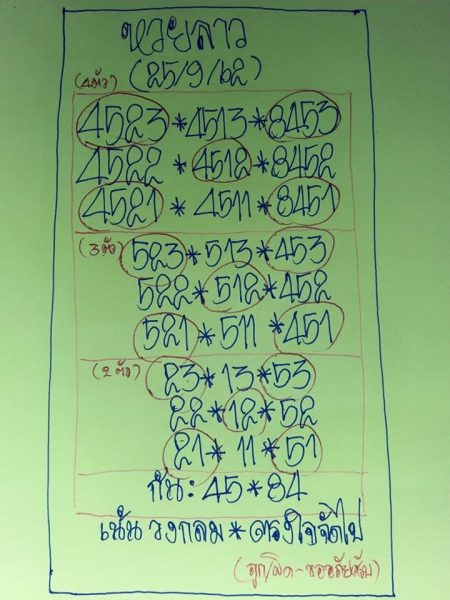 หวยลาว
(25/9/62)
(4ตัว)
4523*4513*8453
4522*4512*8452
4521*4511*8451
(3ตัว) 523*513*453
522*512*452
521*511*451
(2ตัว) 23*13*53
22*12*52
21*11*51
กัน: 45*84
เน้นวงกลม*ตรงใจจัดไป
(ถูก/ผิด-ขออภัยครับ)